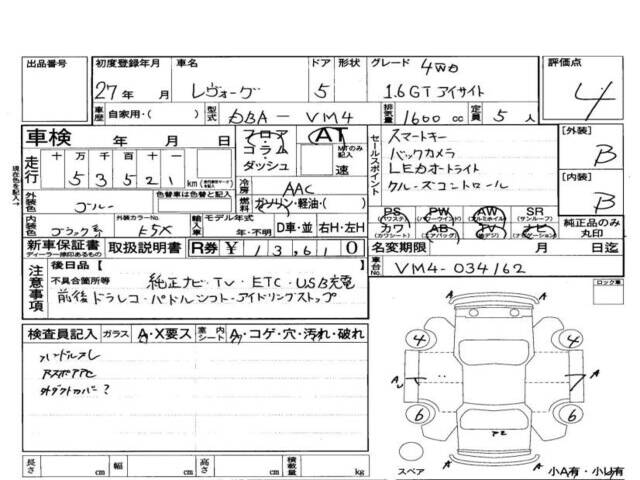 出品番号 初度登録年月 車名 ドア 形状 グレード 4WD 評価点
27年 月 レヴォーグ 5 1.6GT アイサイト 4
車歴 自家用・( ) 型式 DBA-VM4 排気量 1600 cc 定員 5 人
車検 年 月 日 フロア コラム・ダッシュ AT MTのみ記入 速
セールスポイント スマートキー
バックカメラ
LEDオートライト
クルーズコントロール
[外装] B
[内装] B
現在色を記入→
走行 十 万 千 百 十 一
5 3 5 2 1 km
外装色 ブルー 色替車は色替と記入 冷房 AAC
燃料 ガソリン・軽油・( )
内装色 ブラック系 外装カラーNo. E8X 輸入車 モデル年式 年・不明 D車・並 右H・左H
PS (パワステ) PW (パワーウインド) AW (アルミホイル) SR (サンルーフ)
カワ (カワシート) AB (エアバッグ) TV (地デジ) ナビ (ナビゲーション)
純正品のみ丸印
新車保証書 ディーラー捺印あるもの 取扱説明書 R券 ¥ 1 3,6 1 0 名変期限 月 日迄
注意事項 後日品 [ ]
不具合箇所等 純正ナビ・TV・ETC・USB充電
前後ドラレコ・パドルシフト・アイドリングストップ
車台No. VM4-034162
ロック車
検査員記入 ガラス A・X要ス 室内シート A・コゲ・穴・汚れ・破れ
ハンドルスレ
外ダクトカバー?
A
4 4
A A
6 6
A A
スペア 小A有・小U有
長さ cm 幅 cm 高さ cm 積載量 kg